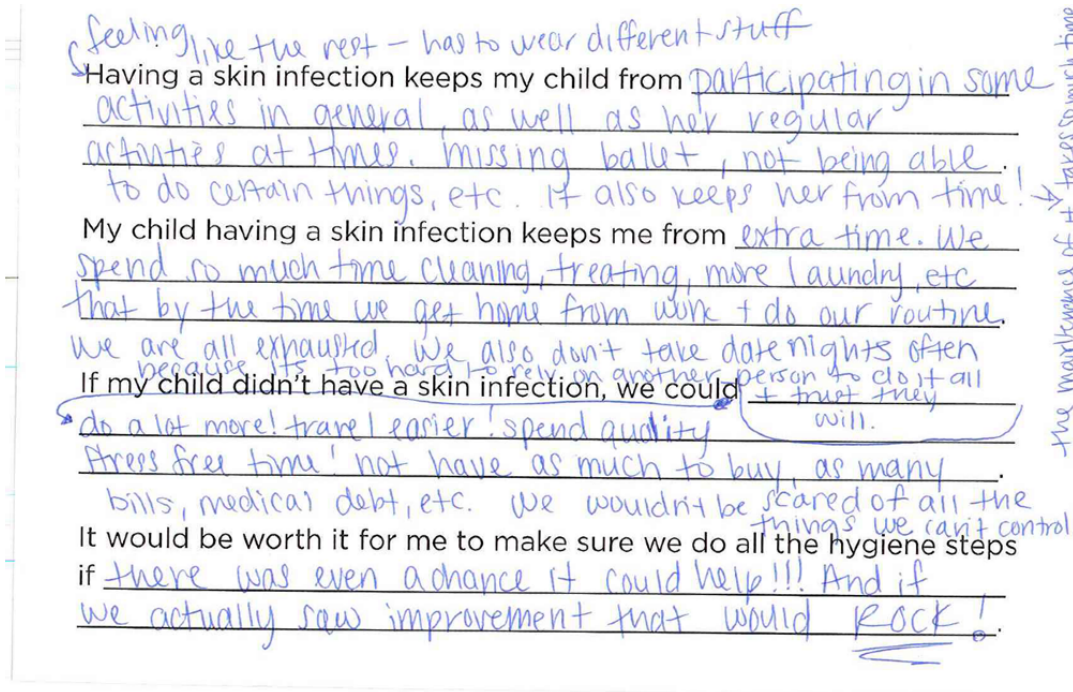 feeling like the rest - has to wear different stuff
Having a skin infection keeps my child from participating in some
activities in general, as well as her regular
activities at times. missing ballet, not being able
to do certain things, etc. It also keeps her from time! →
the maintenance of it takes so much time
My child having a skin infection keeps me from extra time. We
spend so much time cleaning, treating, more laundry, etc
that by the time we get home from work + do our routine.
We are all exhausted. We also don't take date nights often
because its too hard to rely on another person to do it all
+ trust they
will.
If my child didn't have a skin infection, we could
do a lot more! travel easier! spend quality
stress free time! not have as much to buy, as many.
bills, medical debt, etc. We wouldn't be scared of all the
things we can't control
It would be worth it for me to make sure we do all the hygiene steps
if there was even a chance it could help!!! And if
we actually saw improvement that would ROCK!.